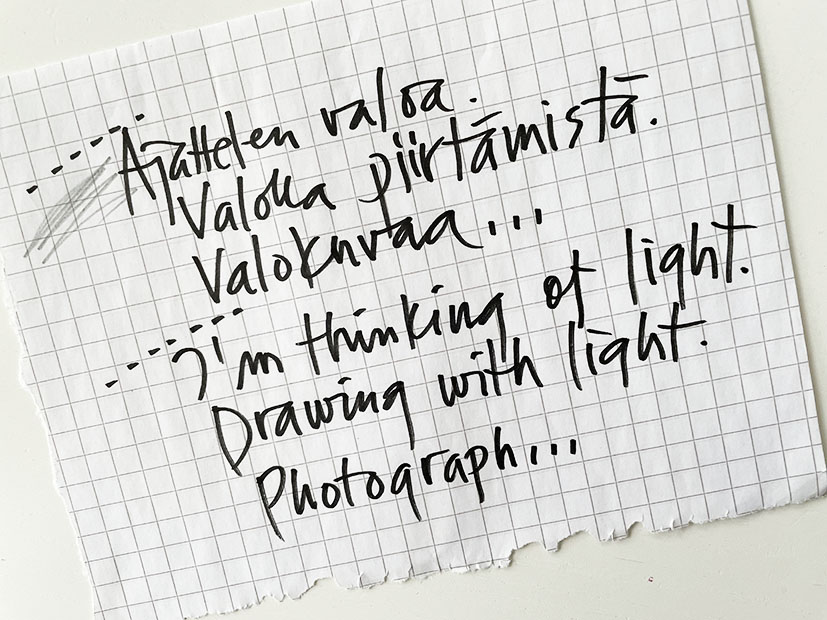 Ajattelen valoa.
Valolla piirtämistä.
Valokuvaa...
I'm thinking of light.
Drawing with light.
Photograph...